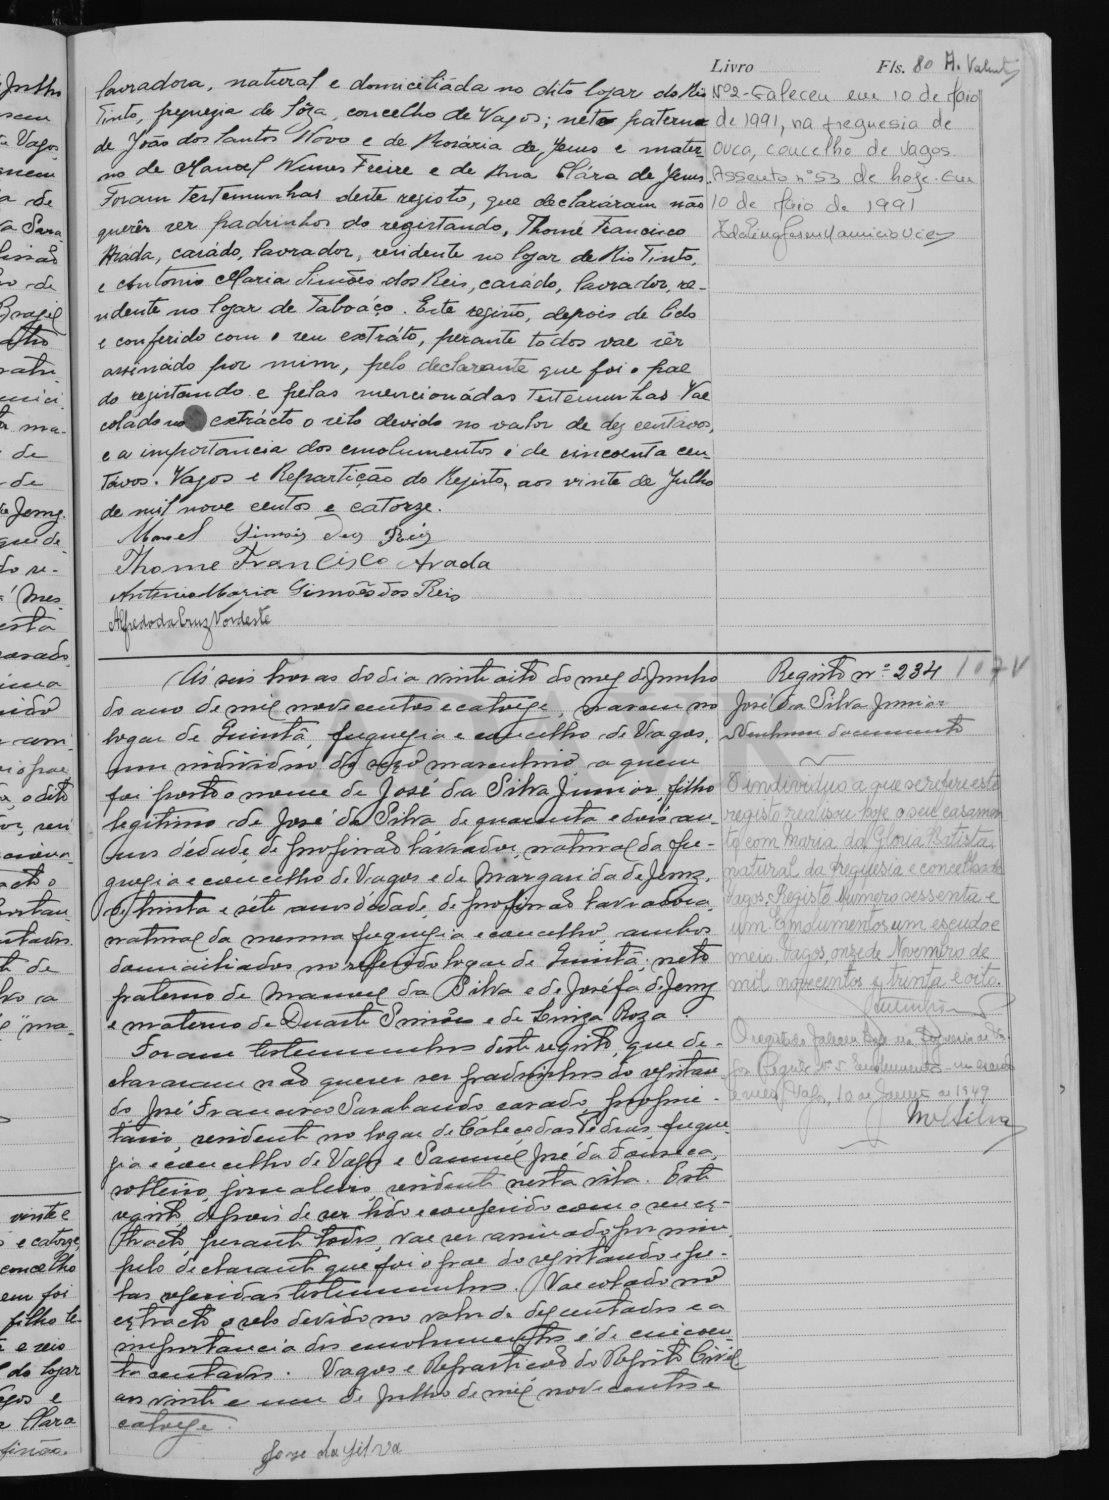 Livro Fls. 80
lavradora, natural e domiciliáda no dito logar do Rio
Tinto, freguezia de Sôza, concelho de Vagos; neto paterno
de João dos Santos Novo e de Rosária de Jesus e mater
no de Manoel Nunes Freire e de Ana Clára de Jesus.
Foram testemunhas deste registo, que declaráram não
querêr ser padrinhos do registando, Thomé Francisco
Arada, casádo, lavrador, residente no logar de Rio Tinto,
e Antonio Maria Simões dos Reis, casádo, lavrador, re-
sidente no logar de Taboáço. Este registo, depois de lido
e conferido com o seu extráto, perante todos vae sêr
assinádo por mim, pelo declarante que foi o pae
do registando e pelas mencionádas testemunhas. Vae
colado no extrácto o sêlo devido no valor de dez centavos,
e a importancia dos emolumentos é de cincoenta cen-
távos. Vagos e Repartição do Registo, aos vinte de Julho
de mil nove centos e catorze.
Manoel Simois dos Reis
Thome Francisco Arada
Antonio Maria Simões dos Reis
Alfredo da Cruz Nordeste
Nº2 - Faleceu em 10 de Maio
de 1991, na freguesia de
Ouca, concelho de Vagos.
Assento nº 53 de hoje. Em
10 de Maio de 1991
Às seis horas do dia vinte oito do mez de Junho
do ano de mil novecentos e catorze, nasceu no
logar de Quintã, freguezia e concelho de Vagos,
um individuo do sexo masculino a quem
foi posto o nome de José da Silva Júnior, filho
legitimo de José da Silva de quarenta e dois an-
nos d'edade, de profissão lavrador, natural da fre-
guezia e concelho de Vagos e de Margarida de Jesus,
de trinta e sete anos d'edade, de profissão lavradora,
natural da mesma freguezia e concelho, ambos
domiciliados no referido logar de Quintã; neto
paterno de Manuel da Silva e de Josefa de Jesus
e materno de Duarte Simões e de Luiza Roza.
Foram testemunhas deste registo, que de-
clararam não querer ser padrinhos do registan-
do José Francisco Sarabando casado, proprie-
tario, residente no logar de Cabeço das Pedras, fregue-
zia e concelho de Vagos e Samuel José da Fonseca,
solteiro, jornaleiro, residente nesta vila. Este
registo, depois de ser lido e conferido com o seu ex-
tracto, perante todos, vae ser assinado por mim,
pelo declarante que foi o pae do registando e pe-
las referidas testemunhas. Vae colado no
extracto o selo devido no valor de dez centavos e a
importancia dos emolumentos é de cincoen-
ta centavos. Vagos e Repartição do Registo Civil
aos vinte e um de Julho de mil novecentos e
catorze.
Jose da Silva
Registo nº 234 107 V
José da Silva Junior
Nenhum documento
O individuo a que se refere este
registo realisou hoje o seu casamen
to com Maria da Gloria Batista,
natural da freguesia e concelho de
Vagos. Registo numero sessenta e
um. Emolumentos um escudo e
meio. Vagos, onze de Novembro de
mil novecentos e trinta e oito.
O registado faleceu hoje na freguesia de Va-
gos. Registo nº 5. Emolumentos - um escudo
e meio. Vagos, 10 de Janeiro de 1949